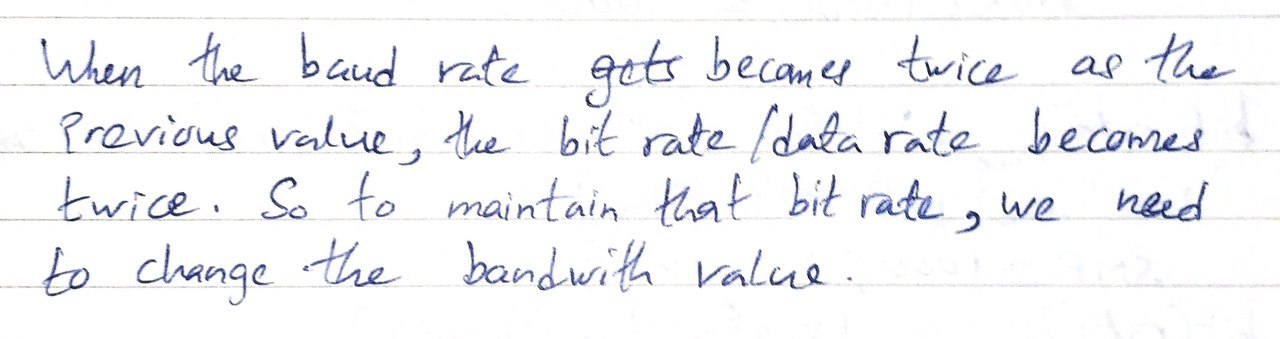 When the baud rate gets becomes twice as the
Previous value, the bit rate/data rate becomes
twice. So to maintain that bit rate, we need
to change the bandwith value.